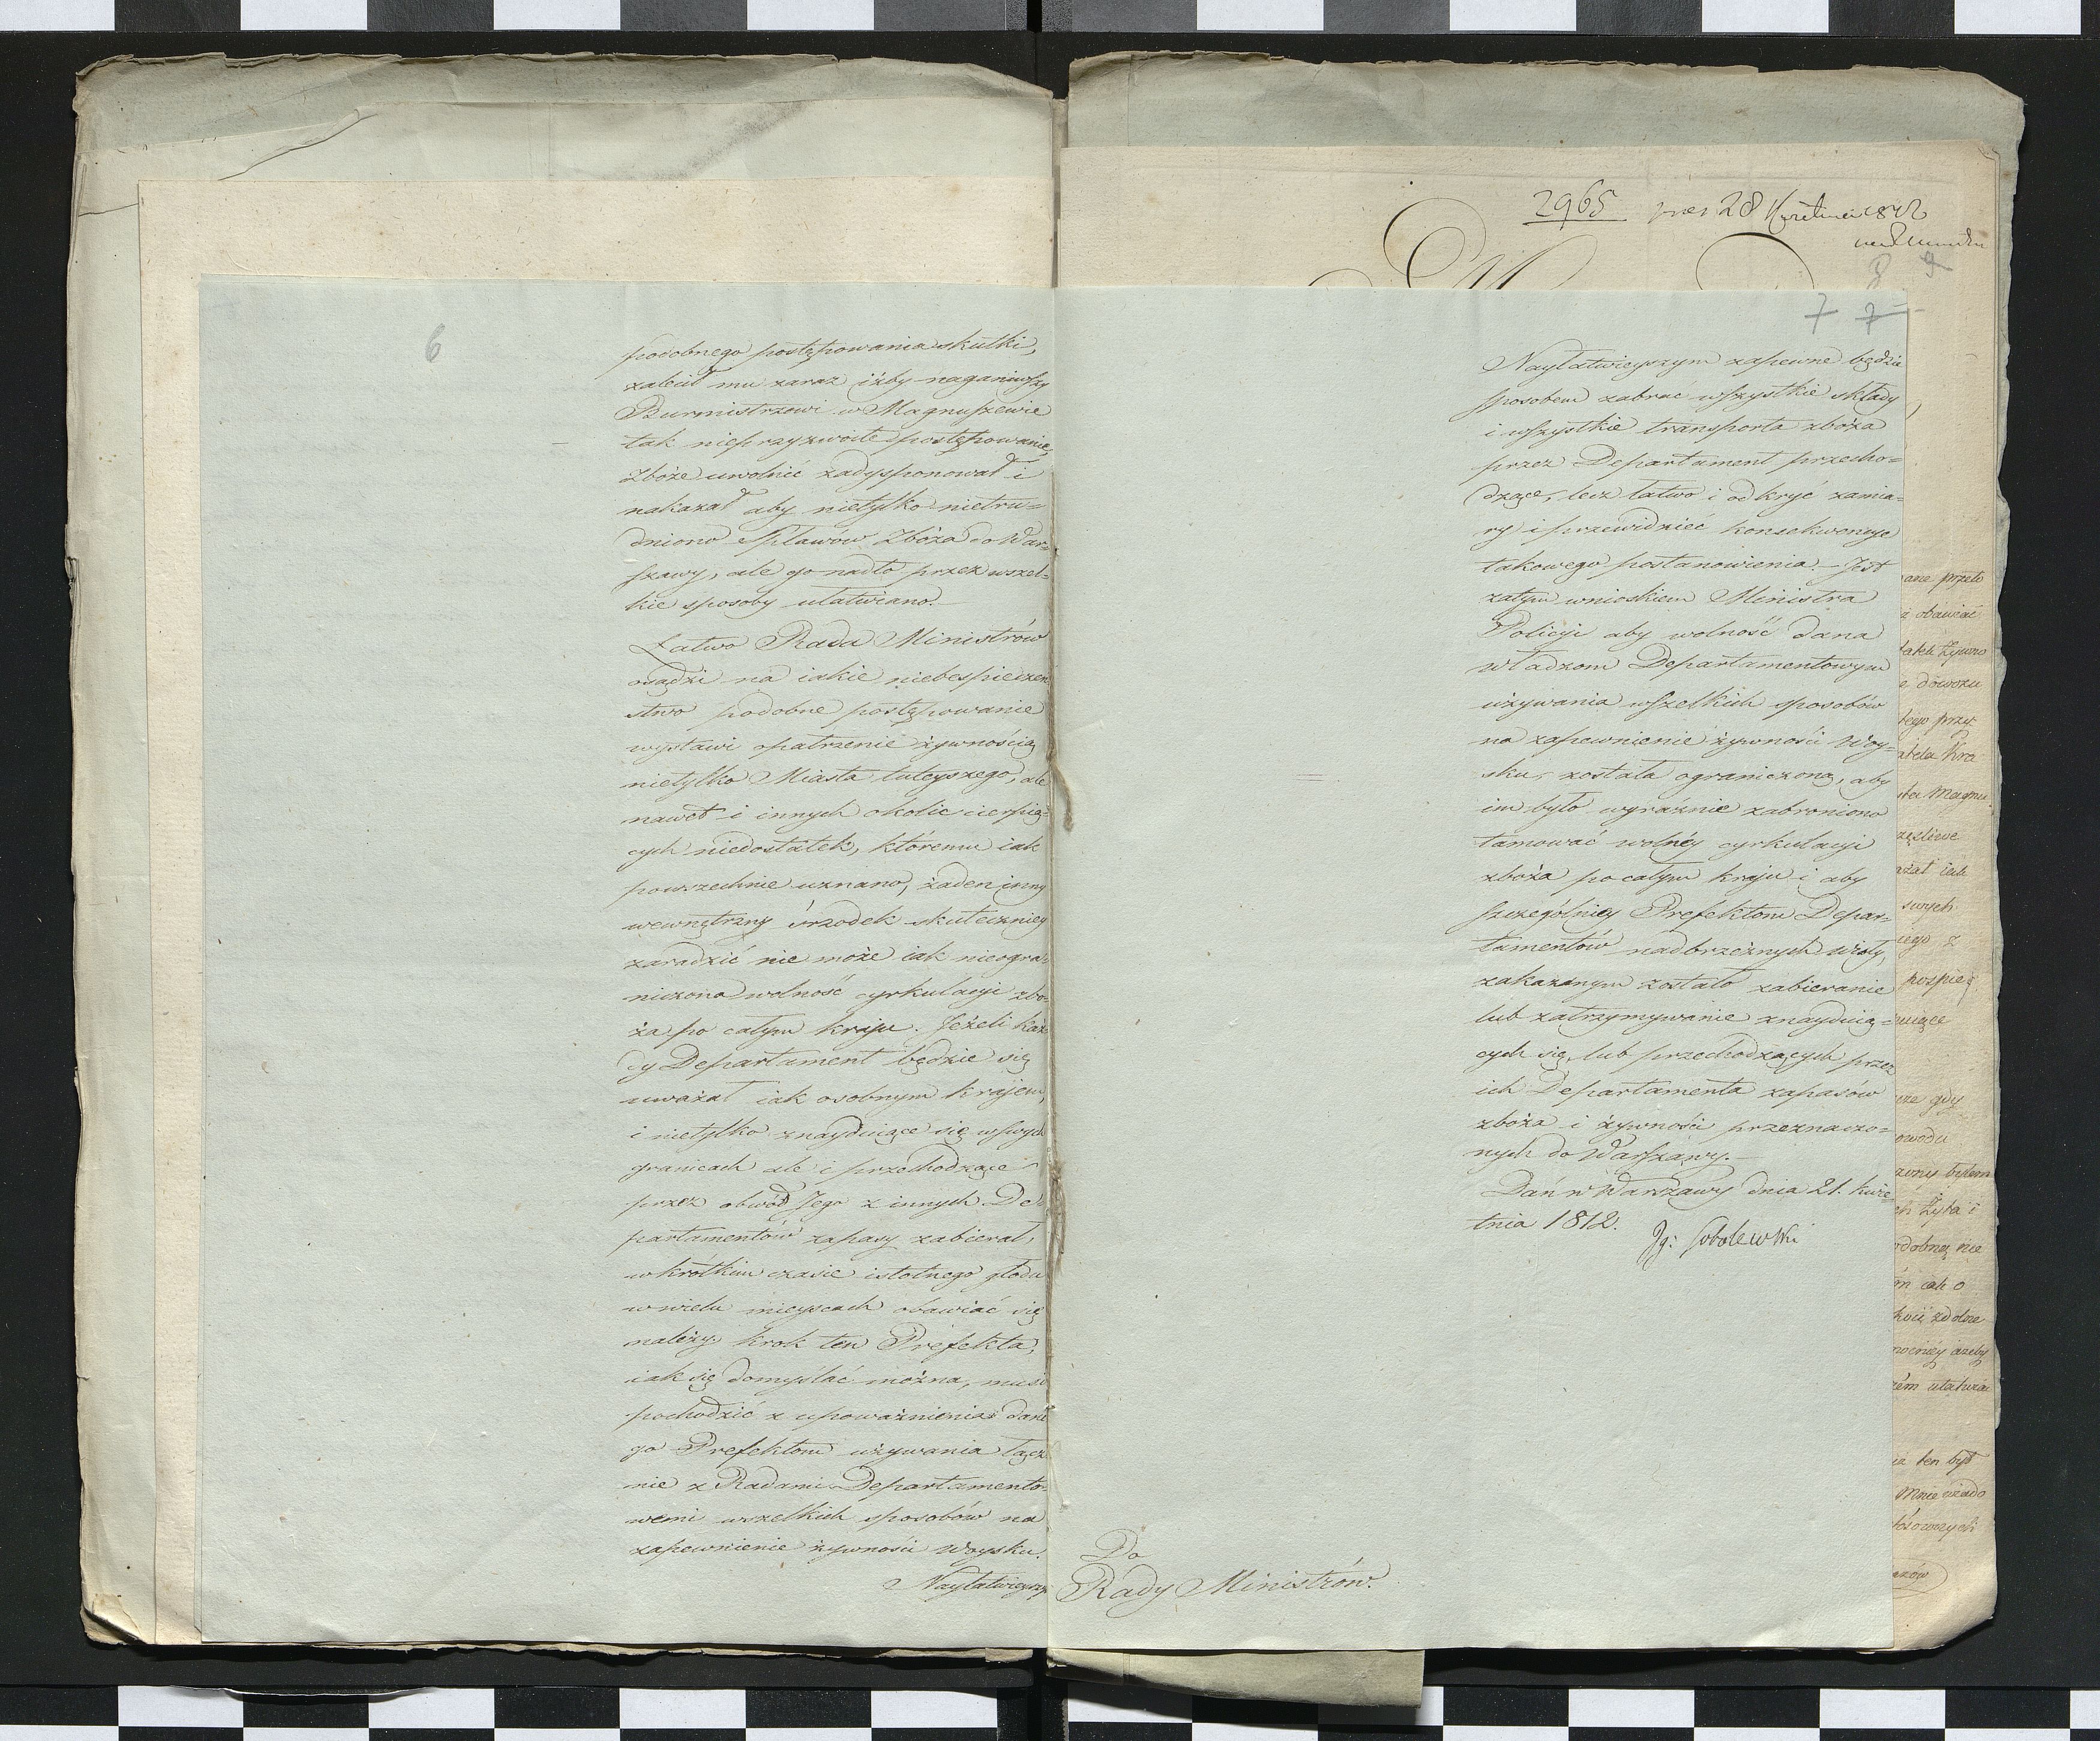 6
podobnego postępowania skutki,
zalecił mu zaraz iżby naganiwszy
Burmistrzowi w Magnuszewie
tak nieprzyzwoite postępowanie,
Zboże uwolnić zadysponował i
nakazał aby nietylko nietru=
dniono Spławów Zboża do War=
szawy, ale go nadto przez wszel=
kie sposoby ułatwiano.–
Łatwo Rada Ministrów
osądzi na iakie niebespieczen=
stwo podobne postępowanie
wystawi opatrzenie żywnością
nietylko Miasta tuteyszego, ale
nawet i innych okolic cierpią=
cych niedostatek, któremu iak
powszechnie uznano, żaden inny
wewnętrzny śrzodek skuteczniey
zaradzić nie może iak nieogra=
niczona wolność cyrkulacyi zbo=
ża po całym kraju. Jeżeli każ
dy Departament będzie się
uważał iak osobnym krajem,
i nietylko znayduiące się wswych
granicach ale i przechodzące
przez obwód Jego z innych De=
partamentów zapasy zabierał,
wkrótkim czasie istotnego głodu
wwielu mieyscach obawiać się
należy. krok ten Prefekta,
iak się domyślać można, musi
pochodzić z upoważnienia dane
go Prefektom używania łącz
nie z Radami Departamento=
wemi wszelkich sposobów na
zapewnienie żywności Woysku.
Nayłatwieyszy
2965 28 Kwietnia 1812
8 9
7 7
Nayłatwieyszym zapewne będzie
sposobem zabrac wszystkie składy,
i wszystkie transporta zboża
przez Departament przecho=
dzące, lecz łatwo i odkryć zamia=
ry i przewidzieć konsekwencye
takowego postanowienia.– Jest
zatym wnioskiem Ministra
Policyi aby wolność dana
władzom Departamentowym
używania wszelkich sposobów
na zapewnienie żywności Woy=
sku, została ograniczoną, aby
im było wyraźnie zabroniono
tamować wolnéy cyrkulacyi
zboża po całym kraju i aby
szczególniey Prefektom Depar=
tamentów nadbrzeżnych Wisły,
zakazanym zostało zabieranie
lub zatrzymywanie znayduią=
cych się, lub przechodzących przez
ich Departamenta zapasów
zboża i żywności przeznaczo=
nych do Warszawy.–
Dań w Warszawy dnia 21. kwie=
tnia 1812.
Jg: Sobolewski
Do
Rady Ministrów.
obawiać
dowozu
pospie
gdy
powodu
Żyta i
zdolne
ażeby
ten był